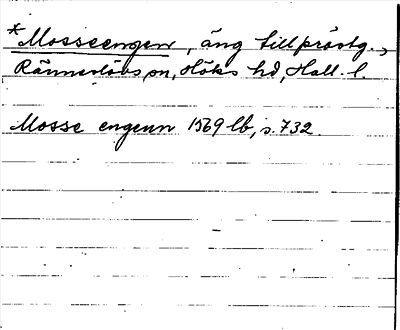 *Mosseengen, äng till prästg.,
Rännerslövs sn, Höks hd, Hall. l.
Mosse engenn 1569 lb, s. 732.